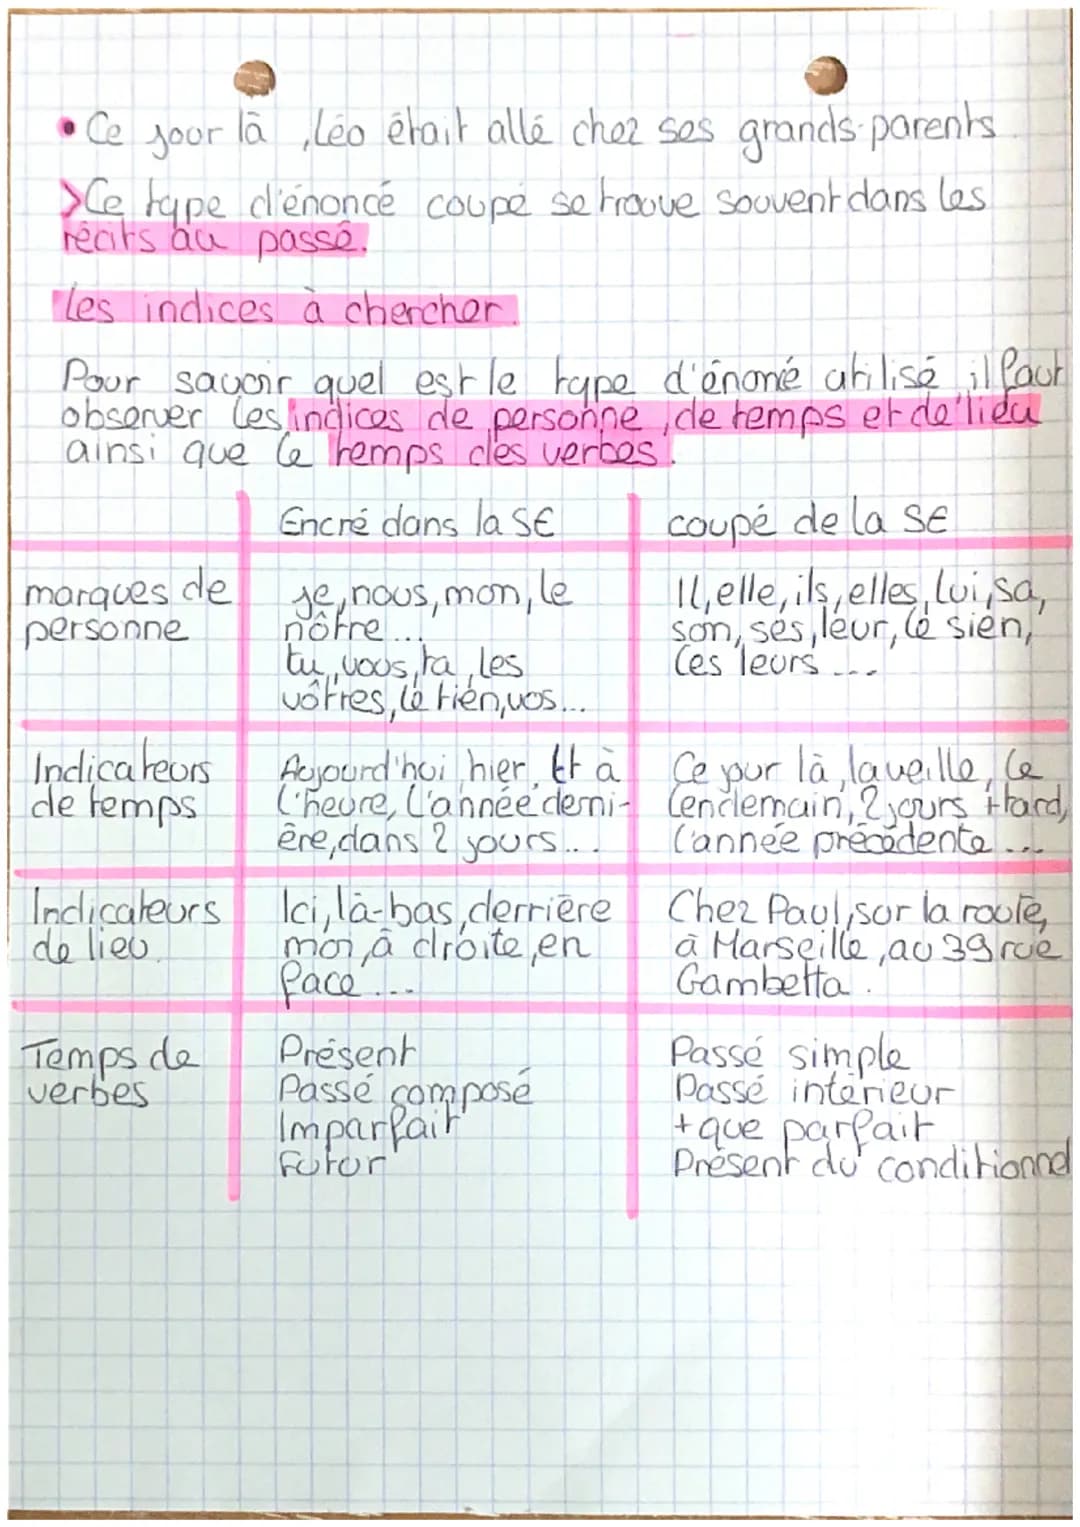 • Ce jour là, Léo était allé chez ses grands-parents.
>Ce type d'énoncé coupé se trouve souvent dans les
récits au passé.
Les indices à chercher.
Pour savoir quel est le type d'énoné utilisé il faut
observer les indices de personne, de temps et de lieu
ainsi que le temps des verbes.
Encré dans la SE
coupé de la SE
marques de
personne
je, nous, mon, le
nôtre...
tu, vous, ta, les
vôtres, le tien, vos...
Il, elle, ils, elles, lui, sa,
son, ses, leur, le sien,
les leurs...
Indicateurs
de temps
Aujourd'hui, hier, tt à
l'heure, l'année derni-
ère, dans 2 jours...
Ce jour là, la veille, le
lendemain, 2 jours + tard,
l'année précédente...
Indicateurs
de lieu.
Ici, là-bas, derrière
moi, à droite, en
face...
Chez Paul, sur la route,
à Marseille, au 39 rue
Gambetta.
Temps de
verbes
Présent
Passé composé
Imparfait
Futur
Passé simple
Passé intérieur
+ que parfait
Présent du conditionnel